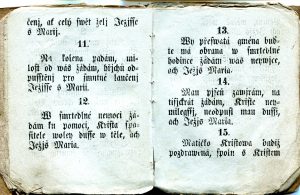 čenj, ať celý swětželj Jezjsse
s Marij.
11.
Na kolena padám, mi-
lost od wás žádám, bijchů od-
pusstěnj pro smutné laučenj
Jezjsse s Marij.
12.
W smrtedlné nemoci žá-
dám ku pomoci, Krista spa-
sitele woley dusse w těle, ach
Jezjs Maria.
13.
Wy přeswatá gména bud-
te má obrana w smrtedlné
hodince žádám was neywjce,
ach Jezjs Maria.
14.
Man pjseň zawjrám, na
tisýckrát žádám, Kriste ney-
milegssj, neodpust man dussi,
ach Jezjs Maria.
15.
Matičko Kristowa budiž
pozdrawená, spolu s Kristem